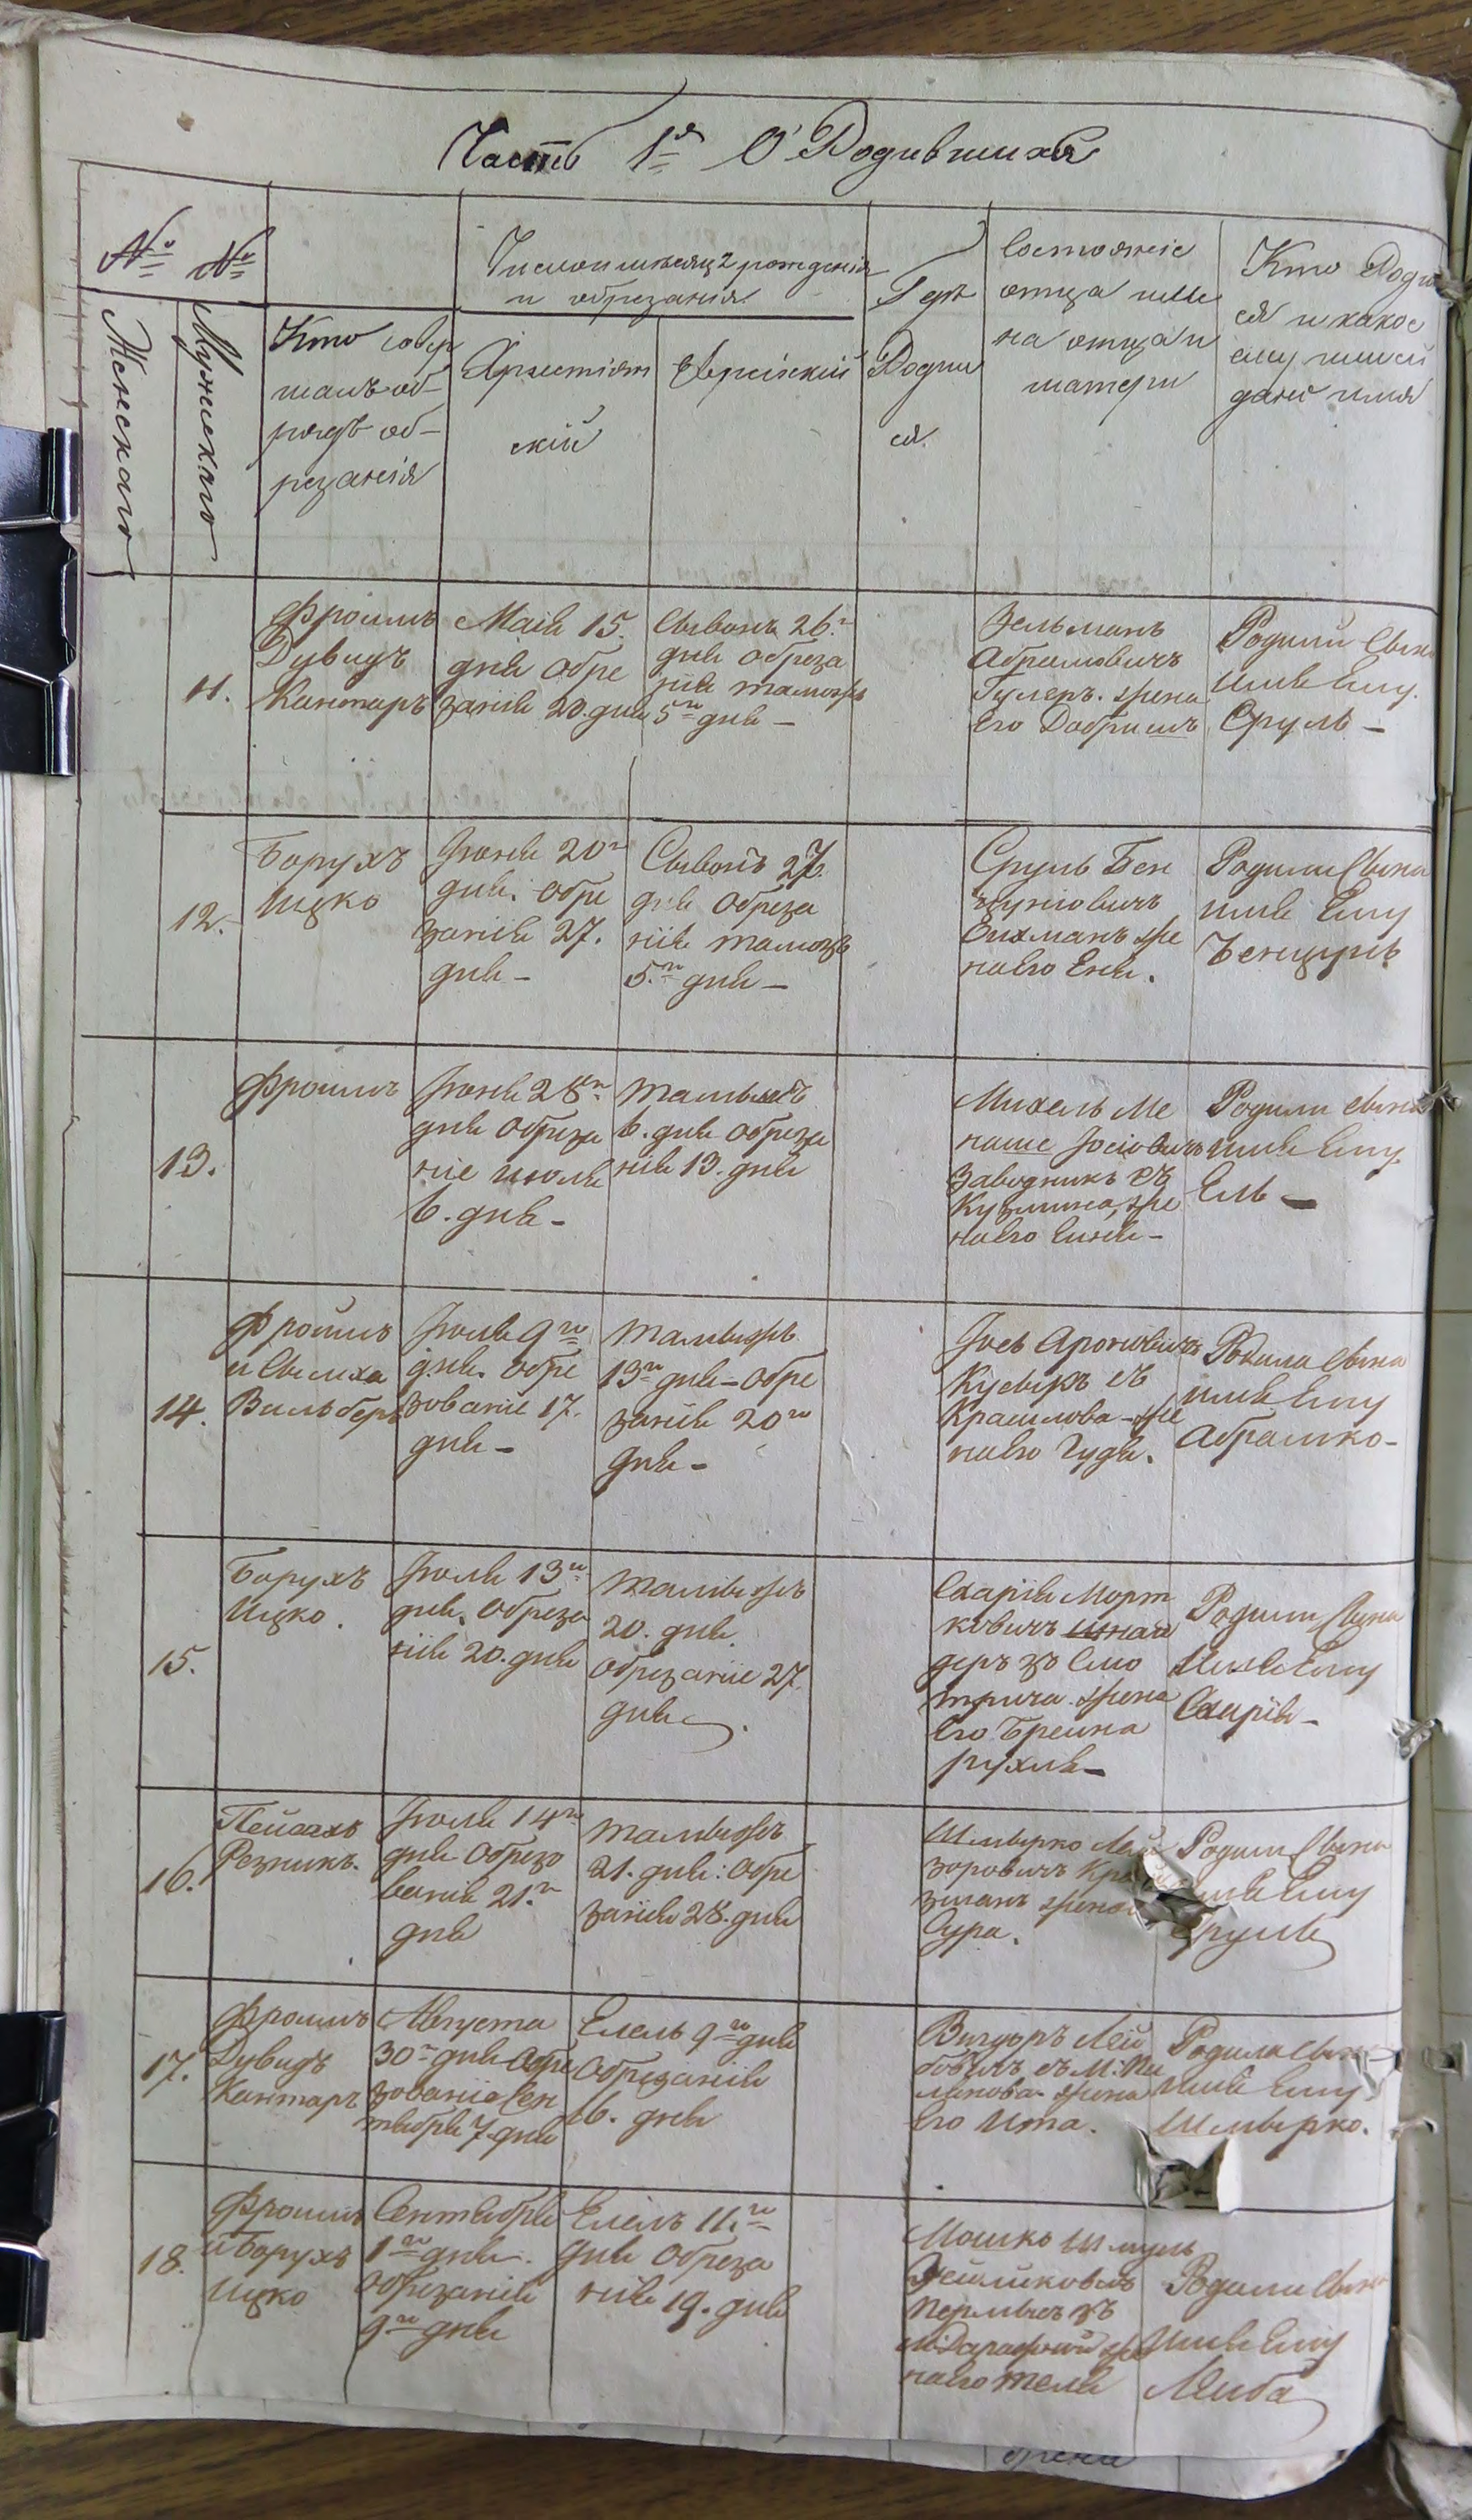 Часть 1я О Родившихся
№ №
Женскаго
Мужскаго
Кто совер
шалъ об-
рядъ об-
резанія
Число и месяцъ рожденія
и обрезанія
Христіян
скій
Еврейский
Где
Родил
ся
Состояніе
отца име
на отца и
матери
Кто Родил
ся и какое
ему или ей
дано имя
11.
Фроимъ
Дувидъ
Кантаръ
Маія 15.
дня обре
занія 20. дня
Сывонъ 26.
дня обреза
нія тамозъ
5го дня —
Зельманъ
Абрамовичъ
Гулеръ. жена
его Добришъ
Родили Сына
имя Ему.
Сруль —
12.
Борухъ
Ицко
Іюня 20го
дня. обре
занія 27.
дня —
Сывонъ 27.
дня обреза
нія тамозъ
5го дня —
Сруль Бен
ціоновичъ
Енхманъ же
на его Еня.
Родили Сына
имя Ему
13.
Фроимъ
Іюня 28го
дня обреза
ніе июля
6. дня —
6. дня обреза
нія 13. дня
Михель Ме
наше Іосіовичъ
заводникъ съ
Кузмина, же
на его
Родили сына
имя Ему.
Ель —
14.
Фроимъ
Вильберъ
Іюля 9го
дня. обре
зованіе 17.
дня —
тамызъ
13го дня — обре
занія 20го
дня —
Іось Ароновичъ
съ
Красилова — же
на его Гудя.
Родили сына
имя Ему
Абрамко —
15.
Борухъ
Ицко.
Іюля 13го
дня. обреза
нія 20. дня
тамызъ
20. дня
обрезаніе 27.
дня.
Схарія Морт
ковичъ
деръ зъ Смо
трича. жена
его Брейна
рухля —
Родили Сына
имя Ему
Схарія —
16.
Пейсахъ
Резникъ.
Іюля 14го
дня обрезо
ванія 21.го
дня
тамызъ
21. дня: обре
занія 28. дня
Шмерко Лей
зоровичъ
жена
Сура.
Родили Сына
имя Ему
Сруль
17.
Фроимъ
Дувидъ
Кантаръ
Августа
30го дня обре
зованіе Сен
тября 7. дня
Елель 9го дня
обрезанія
16. дня
жена
его Ита.
Родили Сына
имя Ему
Шмерко.
18.
Фроимъ
и Борухъ
Ицко
Сентября
1го дня.
обрезанія
9го дня
Елель 11.го
дня обреза
нія 19. дня
Мошко Шмуль
зъ
же
на его Теля
Родили Сына
имя Ему
Лейба